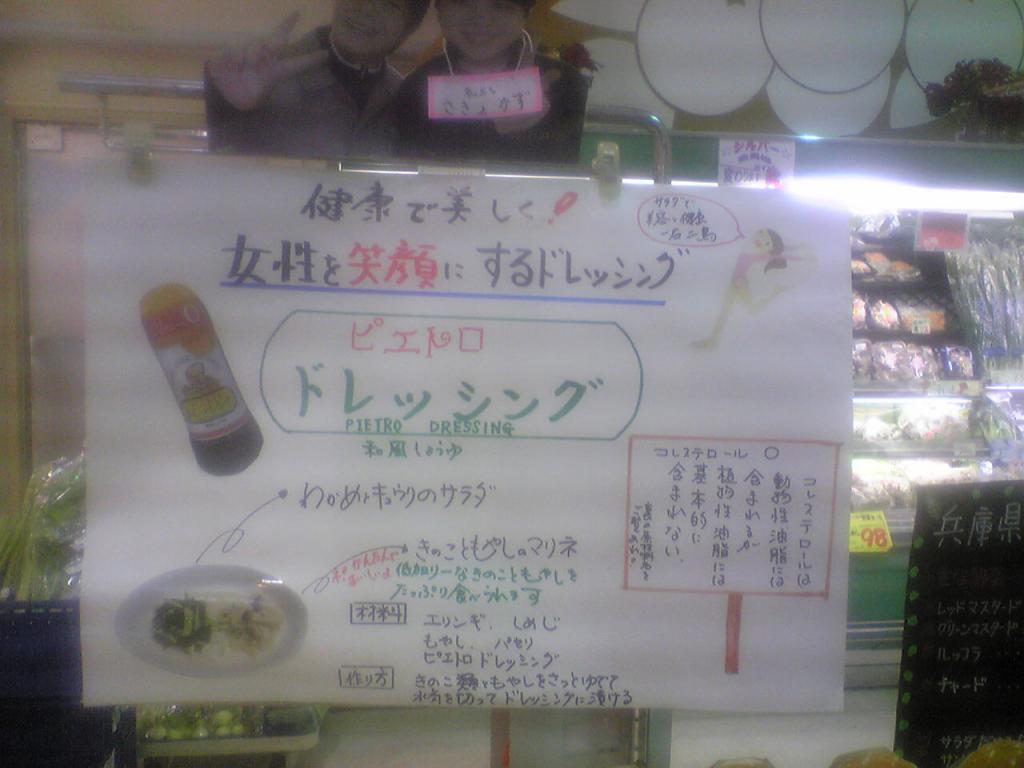 さき&かず
シルバー
健康で美しく!
サラダで
美容と健康
一石二鳥
女性を笑顔にするドレッシング
ピエトロ
ドレッシング
PIETRO DRESSING
和風しょうゆ
コレステロール 0
コレステロールは
動物性油脂には
含まれるが
植物性油脂には
基本的に
含まれない。
わかめとキュウリのサラダ
きのこともやしのマリネ
かんたんで
おいしいよ
低カロリーなきのこともやしを
たっぷり食べられます
材料
エリンギ、しめじ
もやし、パセリ
ピエトロドレッシング
作り方
きのこ類ともやしをさっとゆでて
水気を切ってドレッシングに漬ける
98
兵庫県
レッドマスタード
グリーンマスタード
ルッコラ
チャード